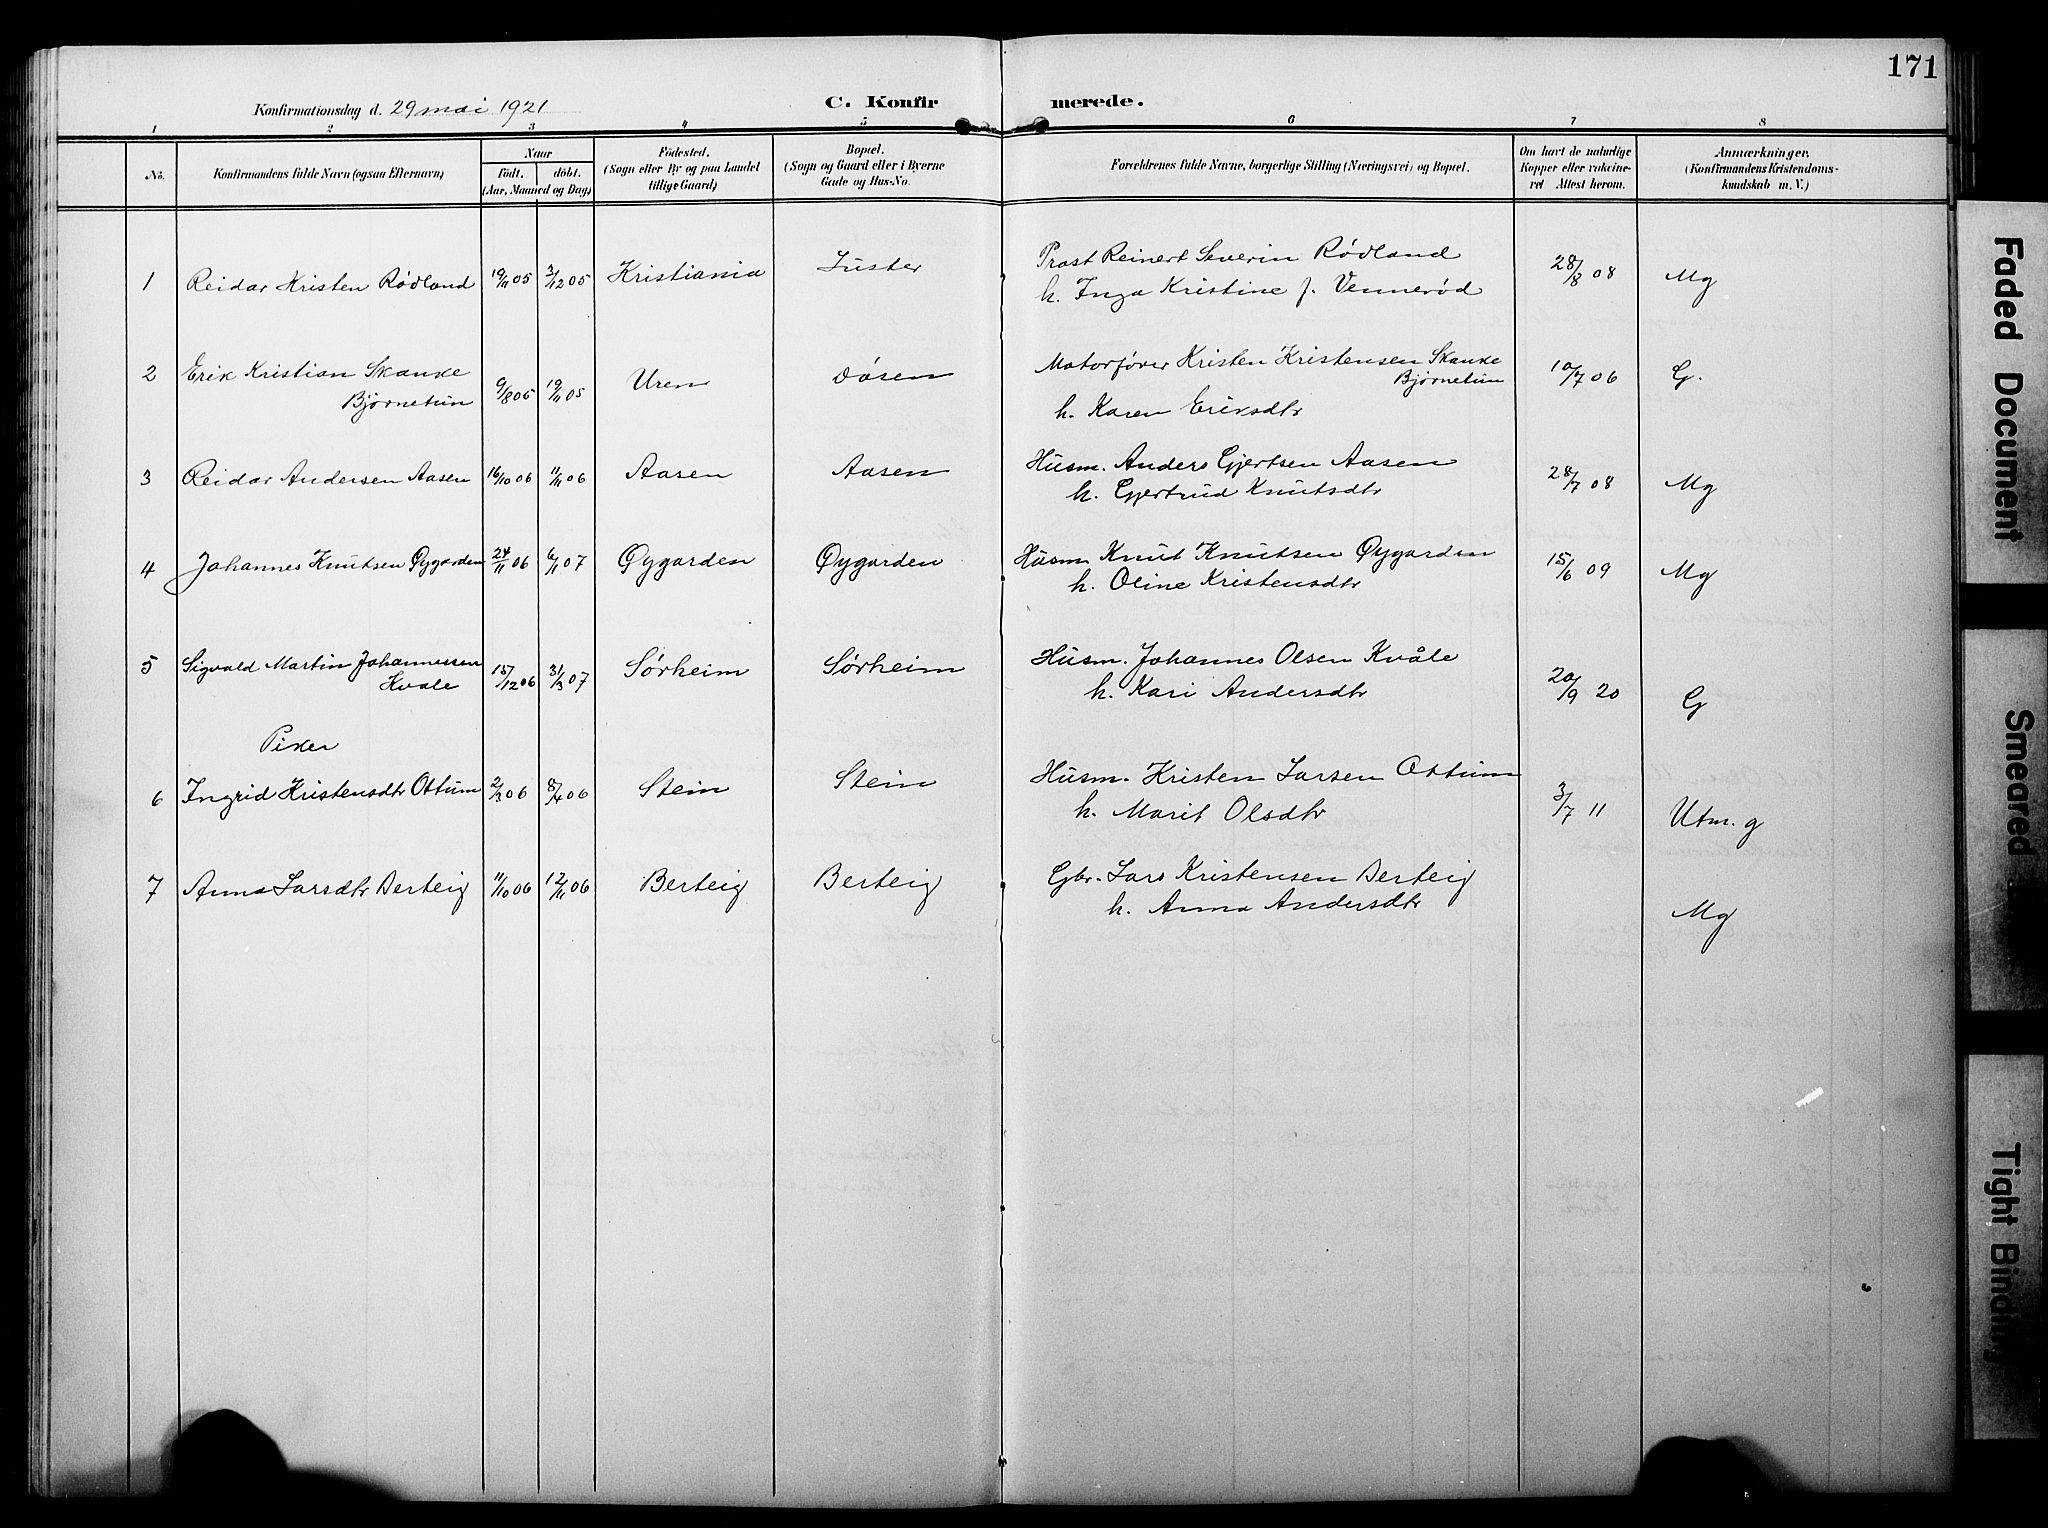 171
Konfirmationsdag d. 29 mai 1921
C. Konfirmerede.
1 2 3 4 5 6 7 8
No. Konfirmandens fulde Navn (ogsaa Efternavn) Naar født. døbt. (Aar, Maaned og Dag) Fødested. (Sogn eller By og paa Landet tillige Gaard) Bopæl. (Sogn og Gaard eller i Byerne Gade og Hus-No. Forældrenes fulde Navne, borgerlige Stilling (Næringsvei) og Bopæl. Om havt de naturlige Kopper eller vakcineret Attest herom. Anmærkninger. (Konfirmandens Kristendomskundskab m. V.)
1 Reidar Kristen Rødland 19/11 05 3/12 05 Kristiania Luster Prost Reinert Severin Rødland 28/8 08 Mg
h. Inga Kristine f. Vennerød
2 Erik Kristian Skanke 9/8 05 19/11 05 Uren Døsen Motorfører Kristen Kristensen Skanke 10/7 06 G.
Bjørnetun Bjørnetun
h. Karen Eriksdtr
3 Reidar Andersen Aasen 16/10 06 11/11 06 Aasen Aasen Husm. Anders Gjertsen Aasen 28/7 08 Mg
h. Gjertrud Knutsdtr
4 Johannes Knutsen Øygarden 24/11 06 6/1 07 Øygarden Øygarden Husm Knut Knutsen Øygarden 15/6 09 Mg
h. Oline Kristensdtr
5 Sigvald Martin Johannessen 15/12 06 31/3 07 Sørheim Sørheim Husm. Johannes Olsen Kvåle 20/9 20 G
Kvale h. Kari Andersdtr
Piker
6 Ingrid Kristensdtr Ottum 2/3 06 8/4 06 Stein Stein Husm. Kristen Larsen Ottum 3/7 11 Utm. g
h. Marit Olsdtr
7 Anna Larsdtr Berteig 11/10 06 12/11 06 Berteig Berteig Gbr. Lars Kristensen Berteig Mg
h. Anna Andersdtr
Faded Document
Smeared
Tight Binding